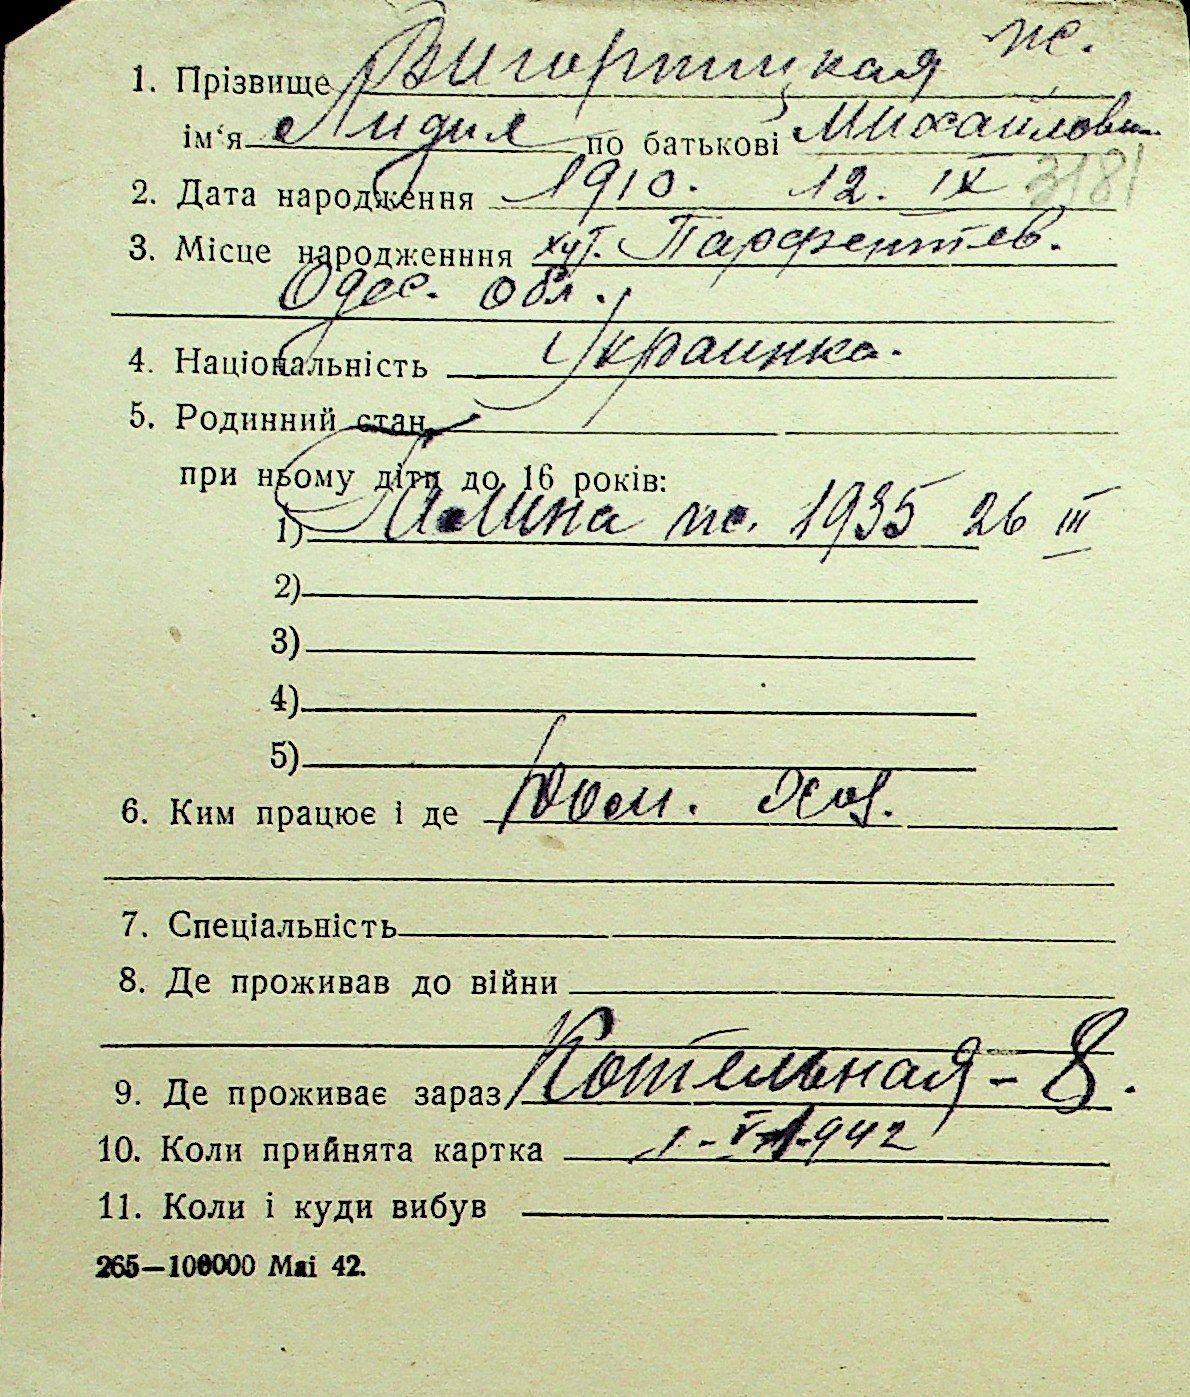 1. Прізвище Вигорницкая ж.
ім'я Лидия по батькові Михайловн.
2. Дата народження 1910. 12. IX 3181
3. Місце народженння хут. Парфентьев.
Одес. обл.
4. Національність Украинка.
5. Родинний стан
при ньому діти до 16 років:
1) Галина ж. 1935 26 III
2)
3)
4)
5)
6. Ким працює і де Дом. Хоз.
7. Спеціальність
8. Де проживав до війни
9. Де проживає зараз Котельная - 8.
10. Коли прийнята картка 1942
11. Коли і куди вибув
265—100000 Mai 42.